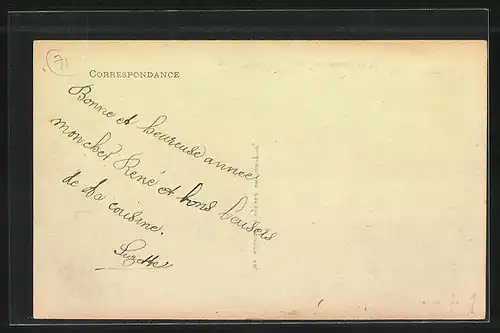 71
CORRESPONDANCE
Bonne et heureuse année
mon cher René et bons baisers
de ta cousine.
Suzette